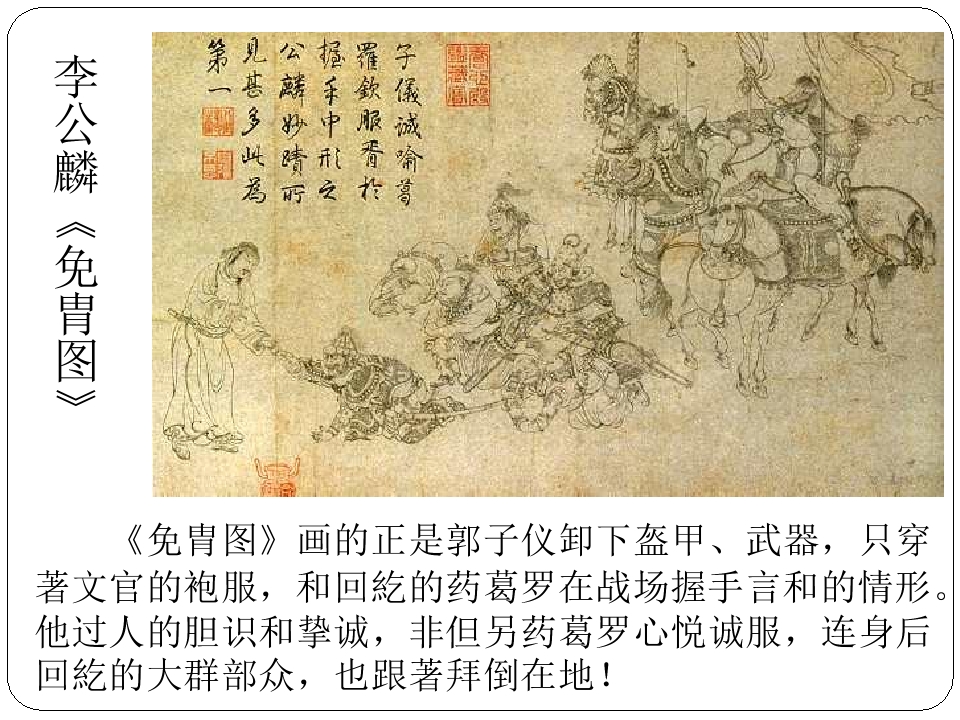 李公麟《免胄图》
子儀誠喻葛
羅欽服胥於
握手中形之
公麟妙蹟所
見甚多此為
第一
《免胄图》画的正是郭子仪卸下盔甲、武器，只穿
著文官的袍服，和回紇的药葛罗在战场握手言和的情形。
他过人的胆识和挚诚，非但另药葛罗心悦诚服，连身后
回紇的大群部众，也跟著拜倒在地！